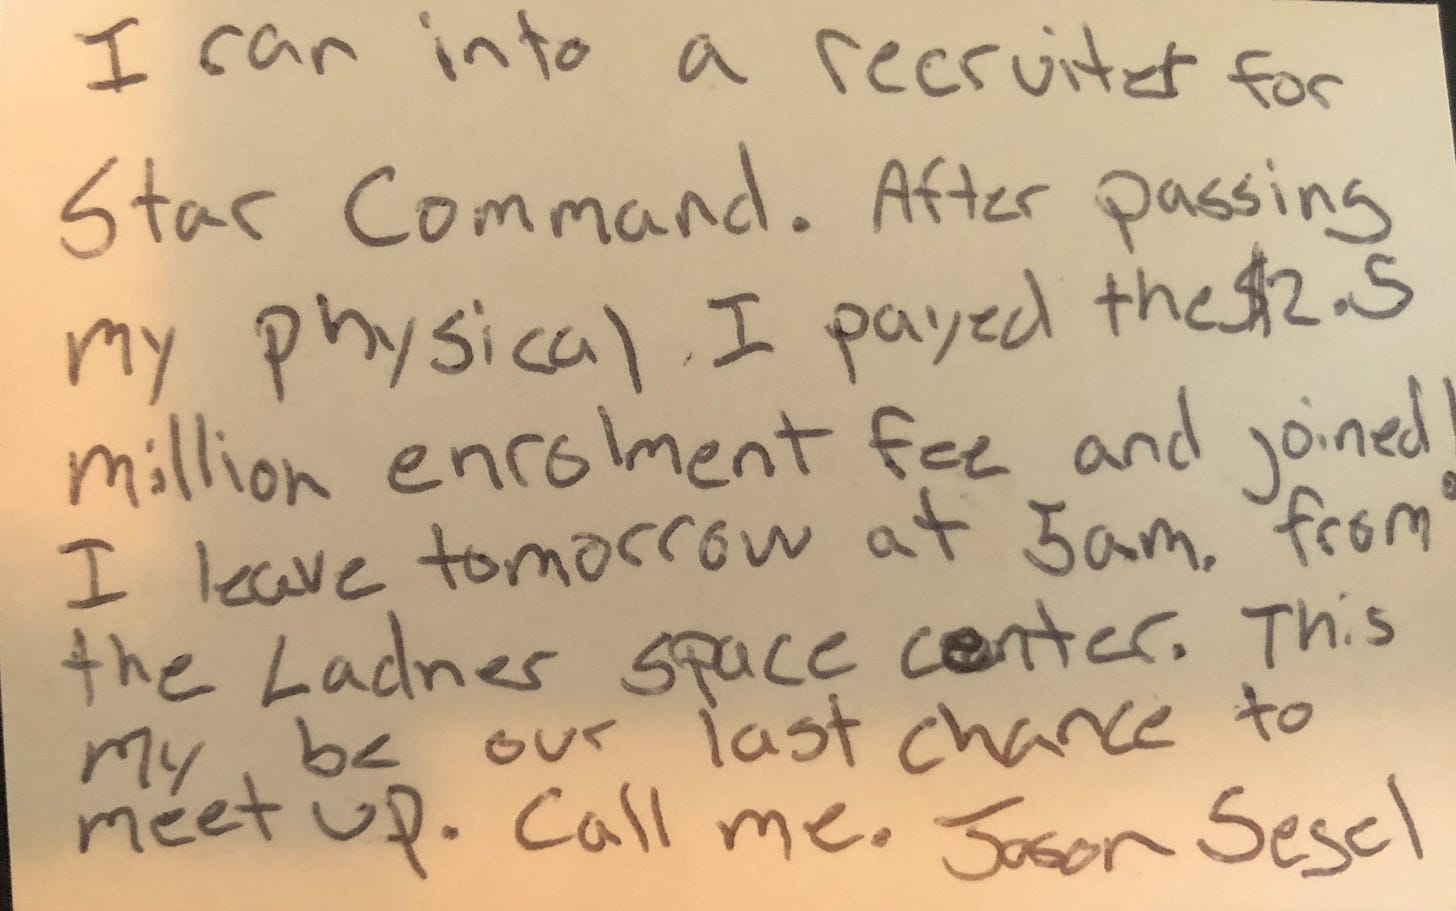 I ran into a recruiter for
Star Command. After passing
my physical, I payed the $2.5
million enrolment fee and joined!
I leave tomorrow at 5am. from
the Ladner space center. This
my be our last chance to
meet up. Call me. Jason Segel